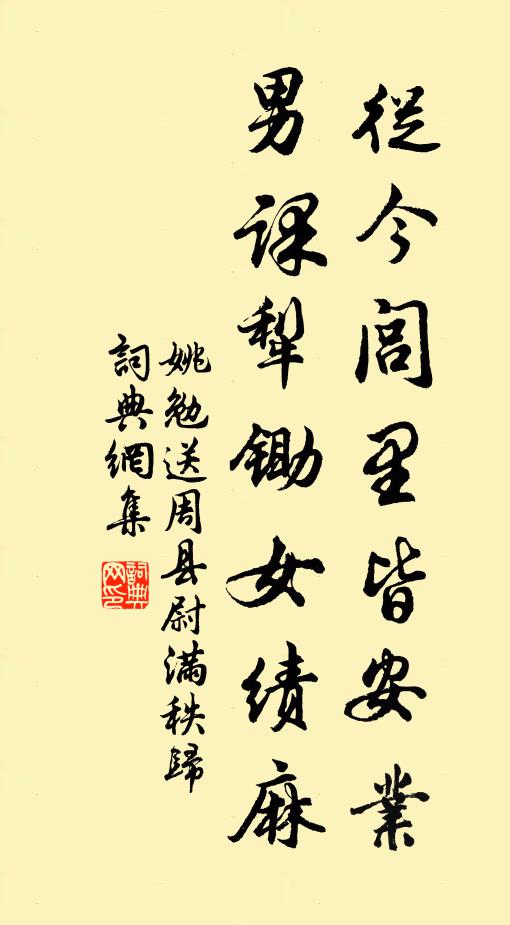 從今閭里皆安業
男課犁鋤女績麻
姚勉送周县尉滿秩歸
詞典網集
詞典网印